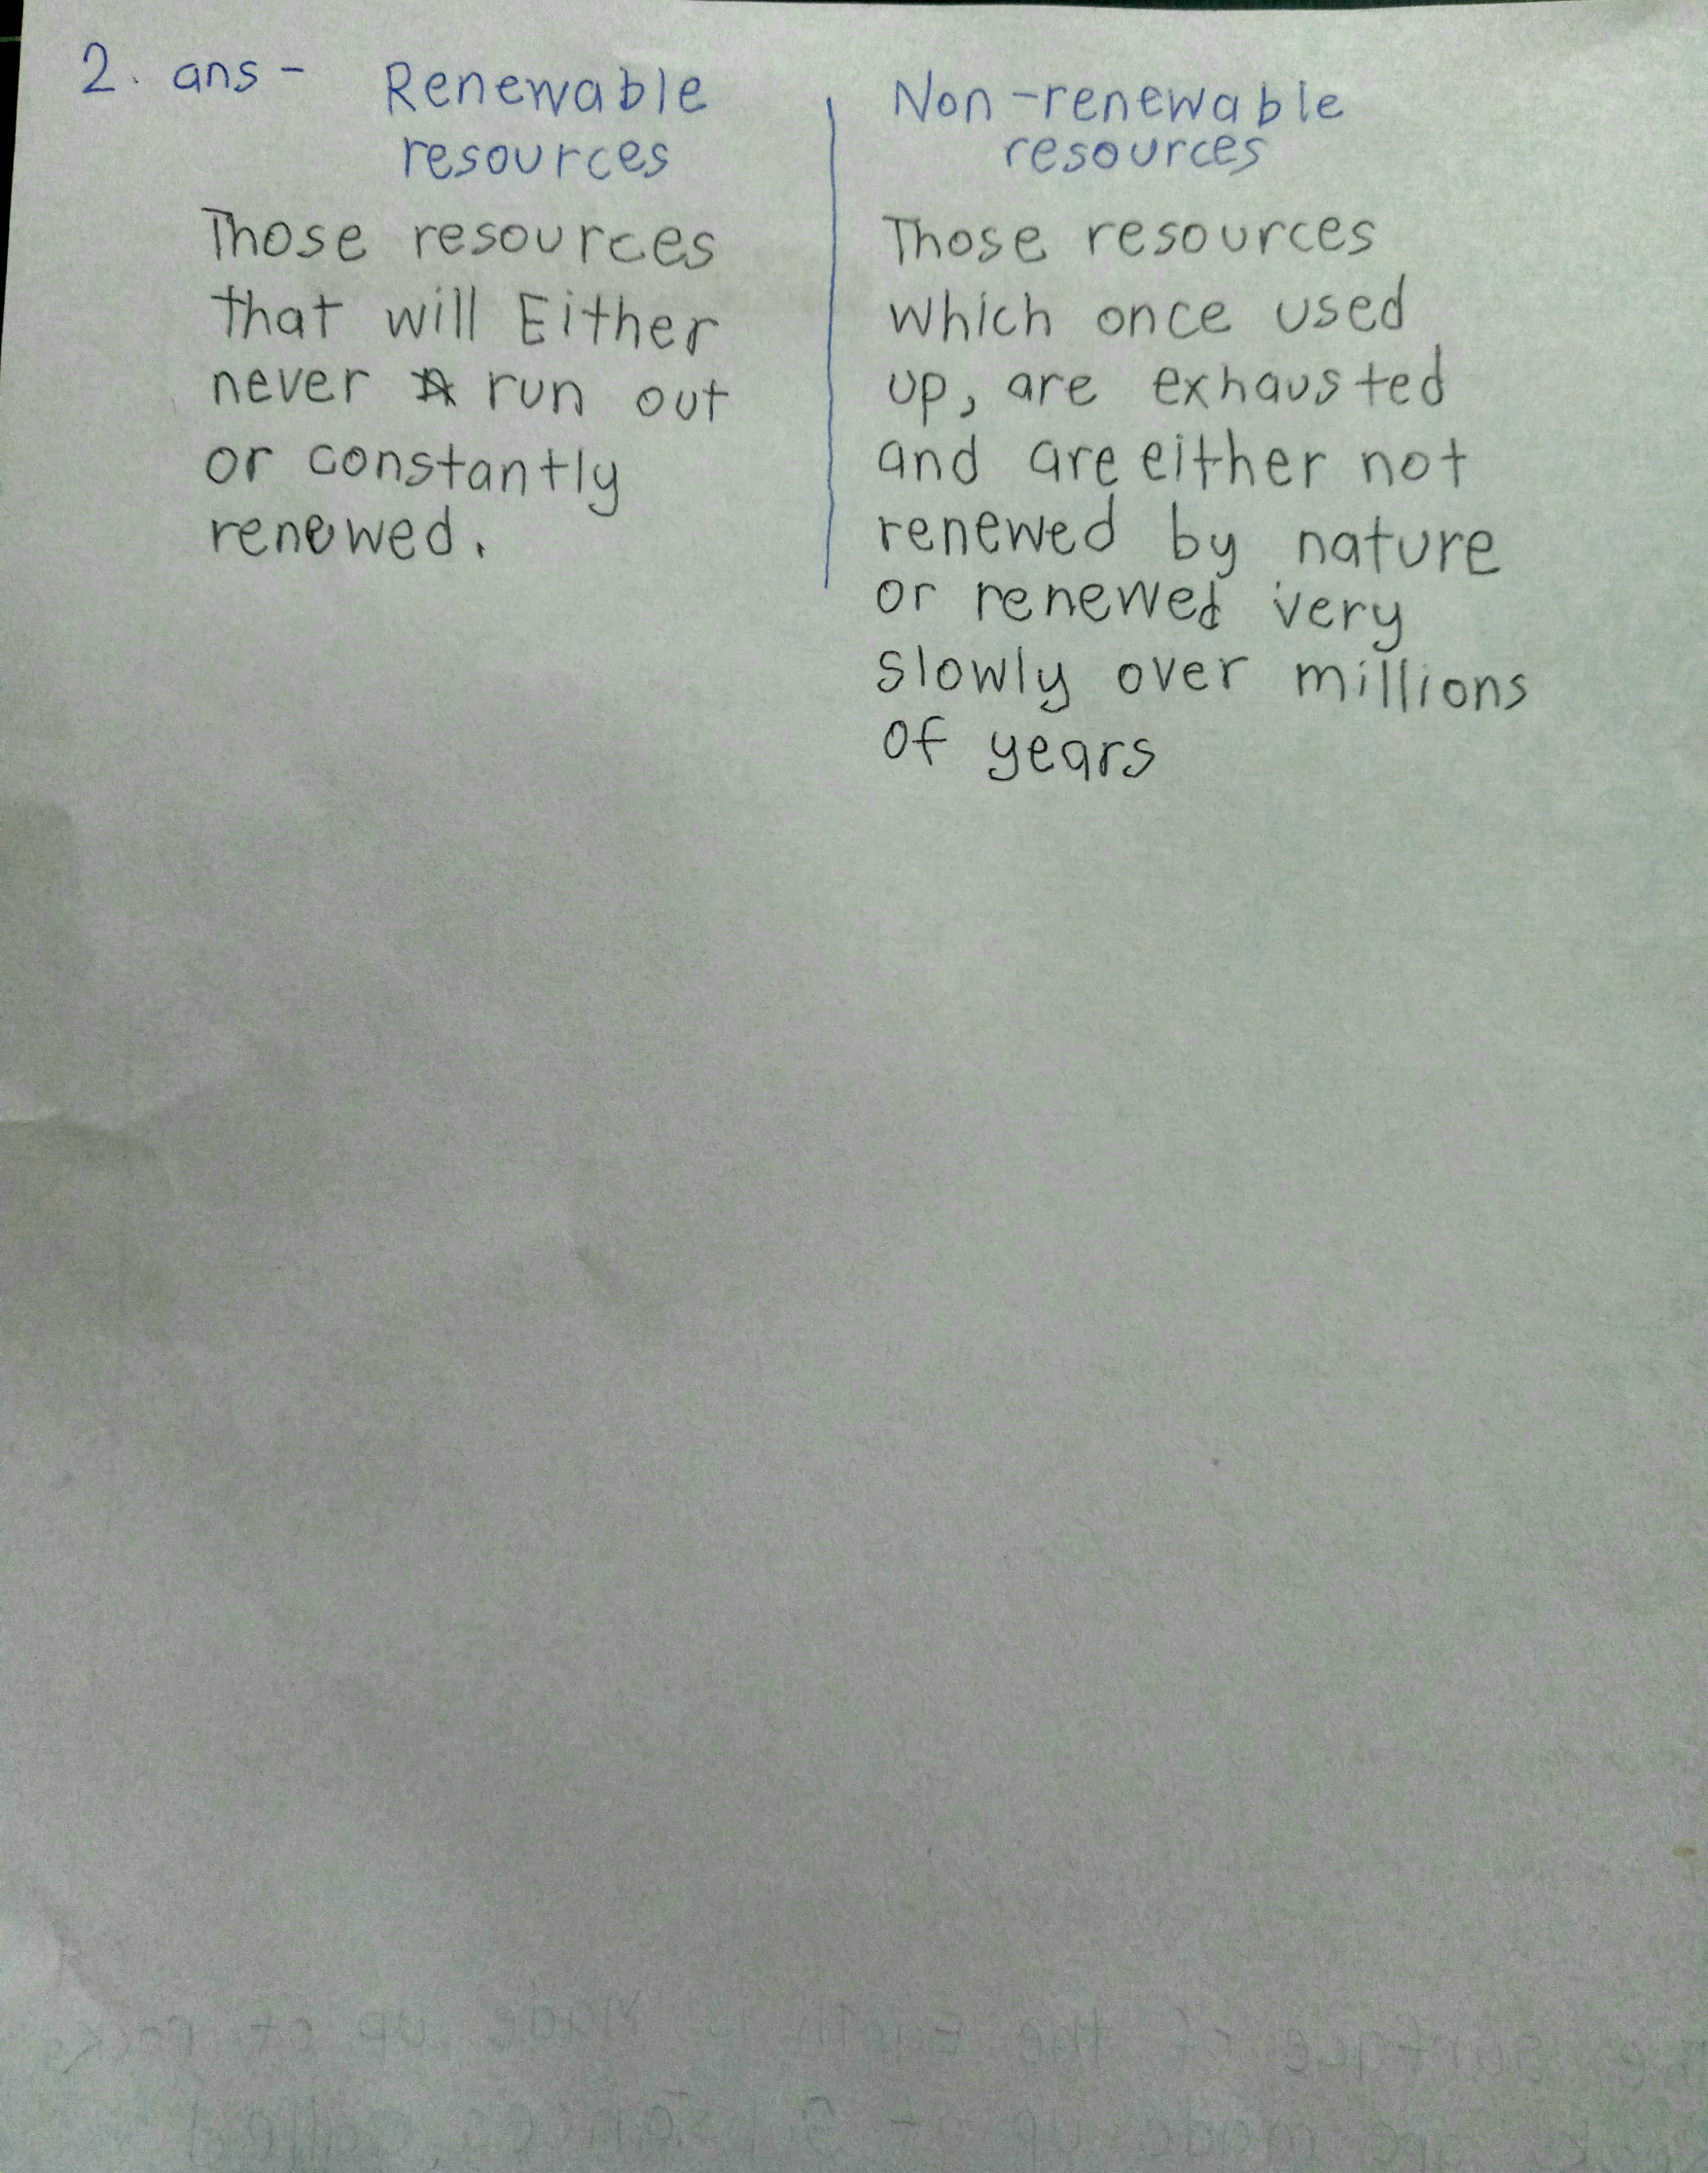 2. ans - Renewable
resources
Those resources
that will Either
never run out
or constantly
renewed.
Non-renewable
resources
Those resources
which once used
up, are exhausted
and are either not
renewed by nature
or renewed very
slowly over millions
of years